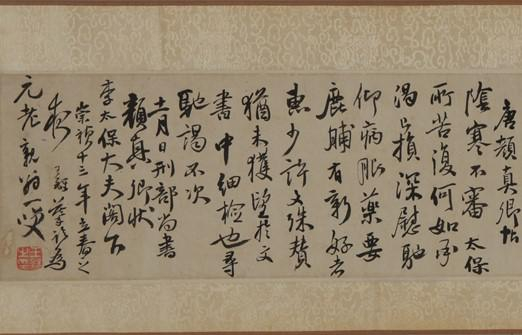 唐顔真卿帖
陰寒不審太保
所苦復何如承
渴已損深慰馳
仰病眼藥要
鹿脯有新好者
惠少許文殊賛
猶未獲望於文
書中細檢也尋
馳謁不次
十一月日刑部尚書
顔真卿状
李太保大夫閤下
崇禎十三年立春之
夜 王鐸 為
元老親翁一笑